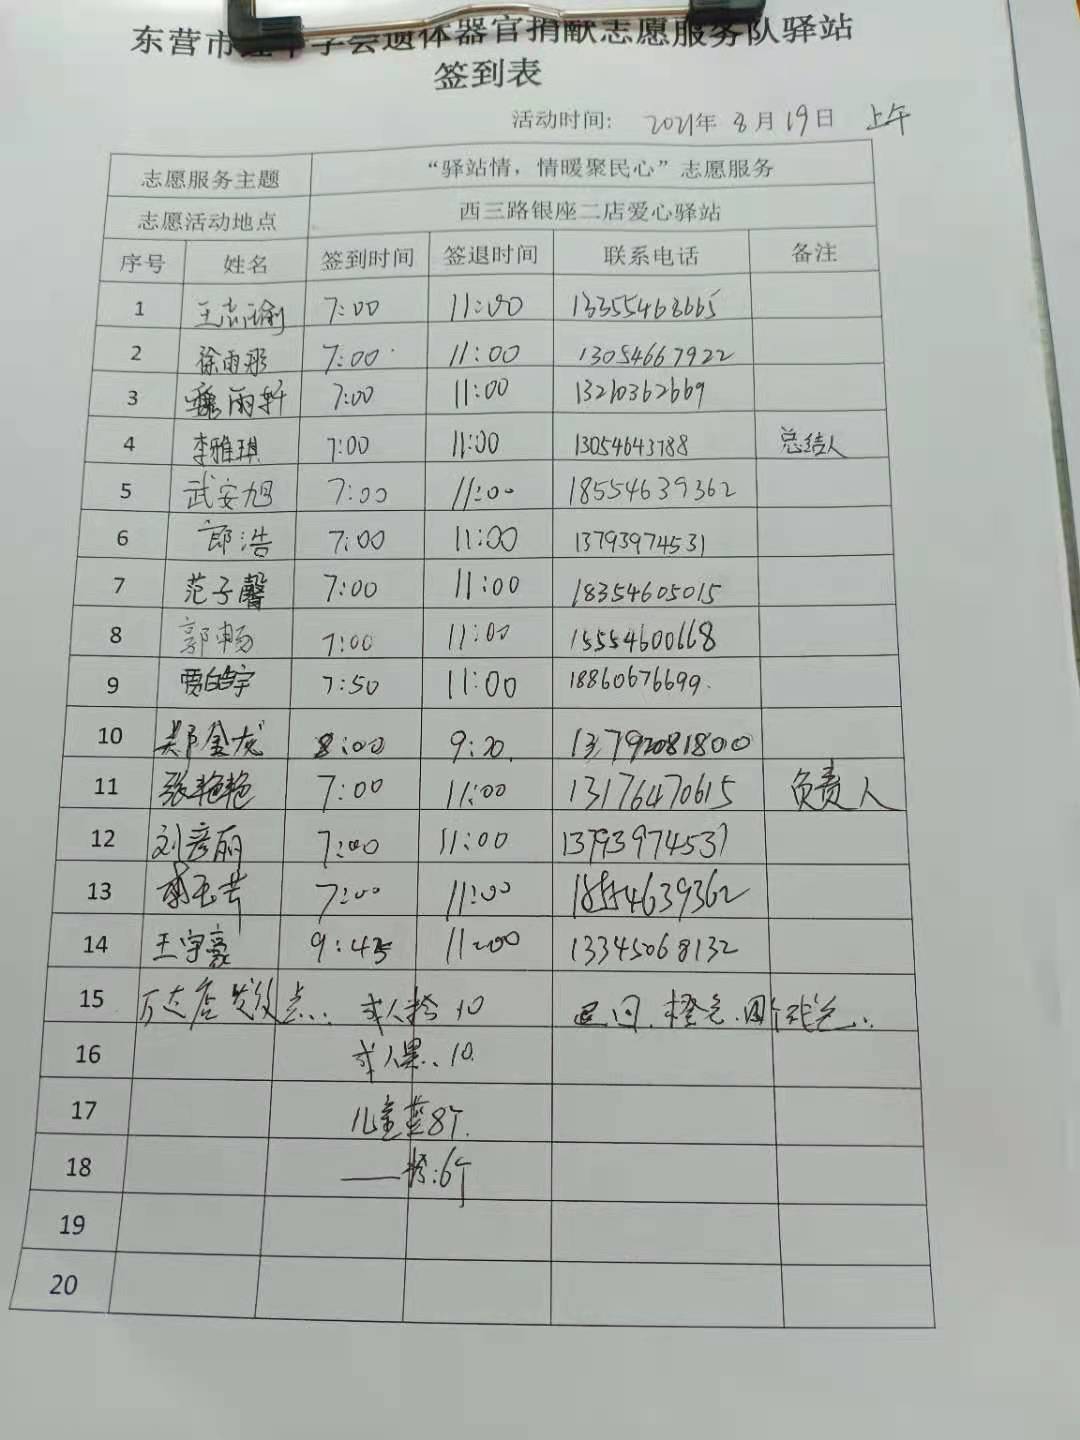 东营市红十字会遗体器官捐献志愿服务队驿站
签到表
活动时间: 2021年 8月19日 上午
志愿服务主题 “驿站情，情暖聚民心”志愿服务
志愿活动地点 西三路银座二店爱心驿站
序号 姓名 签到时间 签退时间 联系电话 备注
1 王志瑜 7:00 11:00 13355468665
2 徐雨彤 7:00 11:00 13054667922
3 魏雨轩 7:00 11:00 13210362669
4 李雅琪 7:00 11:00 13054643788 总结人
5 武安旭 7:00 11:00 18554639362
6 郎浩 7:00 11:00 13793974531
7 范子馨 7:00 11:00 18354605015
8 郭畅 7:00 11:00 15554600668
9 贾皓宇 7:50 11:00 18860676699.
10 郑金龙 8:00 9:20. 13792081800
11 张艳艳 7:00 11:00 13176470615 负责人
12 刘彦丽 7:00 11:00 13793974531
13 7:00 11:00 18554639362
14 王宇豪 9:45 11:00 13345068132
15 万达店发放点.. 成人橙10 橙色
16 成人黑.10.
17 儿童蓝8个.
18 —橙:6个
19
20